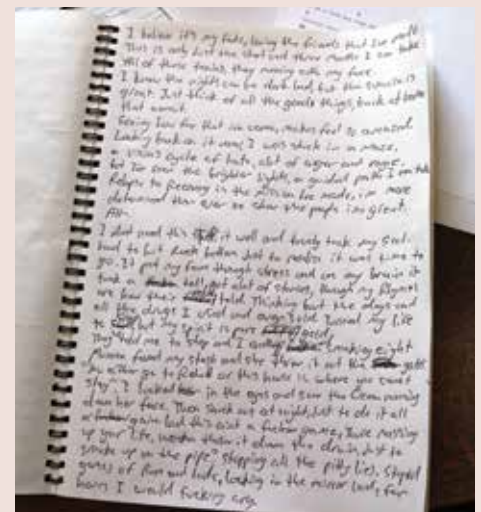 I believe it's my fate, losing the friends that I've
This is only just the start and three months I can take
All of these tears, they running down my face.
I know the nights can be dark but, but the sunrise is
great. Just think of all the goods things, think of
that await.
Seeing how far that iv come, makes feel so
Looking back on it now, I was stuck in a maze,
a vicious cycle of hate, alot of anger and rage,
but Iv seen the brighter lights, a guided path I can take
Relapse to Recovery is the mission Ive made, i'm more
determined than ever to show the people i'm great.

I dont need this it well and truely took my soul.
had to hit Rock bottom Just to realise it was time to
go. It put my fam though stress and on my brain it
took a toll, got alot of stories, though my Rhymes
are how their told. Thinking bout the days and
all the drugs I used and sold. I my life
to but my spirit is pure gold.
They told me to stop and I smoking eight
found my stash and she threw it out the gate
either go to Rehab or this house is where you cannot
stay". I looked in the eyes and saw the running
down her face. Then snuck out at night, Just to do it all
again but this aint a game, Youre pissing
up your life, throw it down the drain, Just to
smoke up on the pipe" stopping all the lies, stupid
games of and hide, Looking in the mirror
I would fucking cry